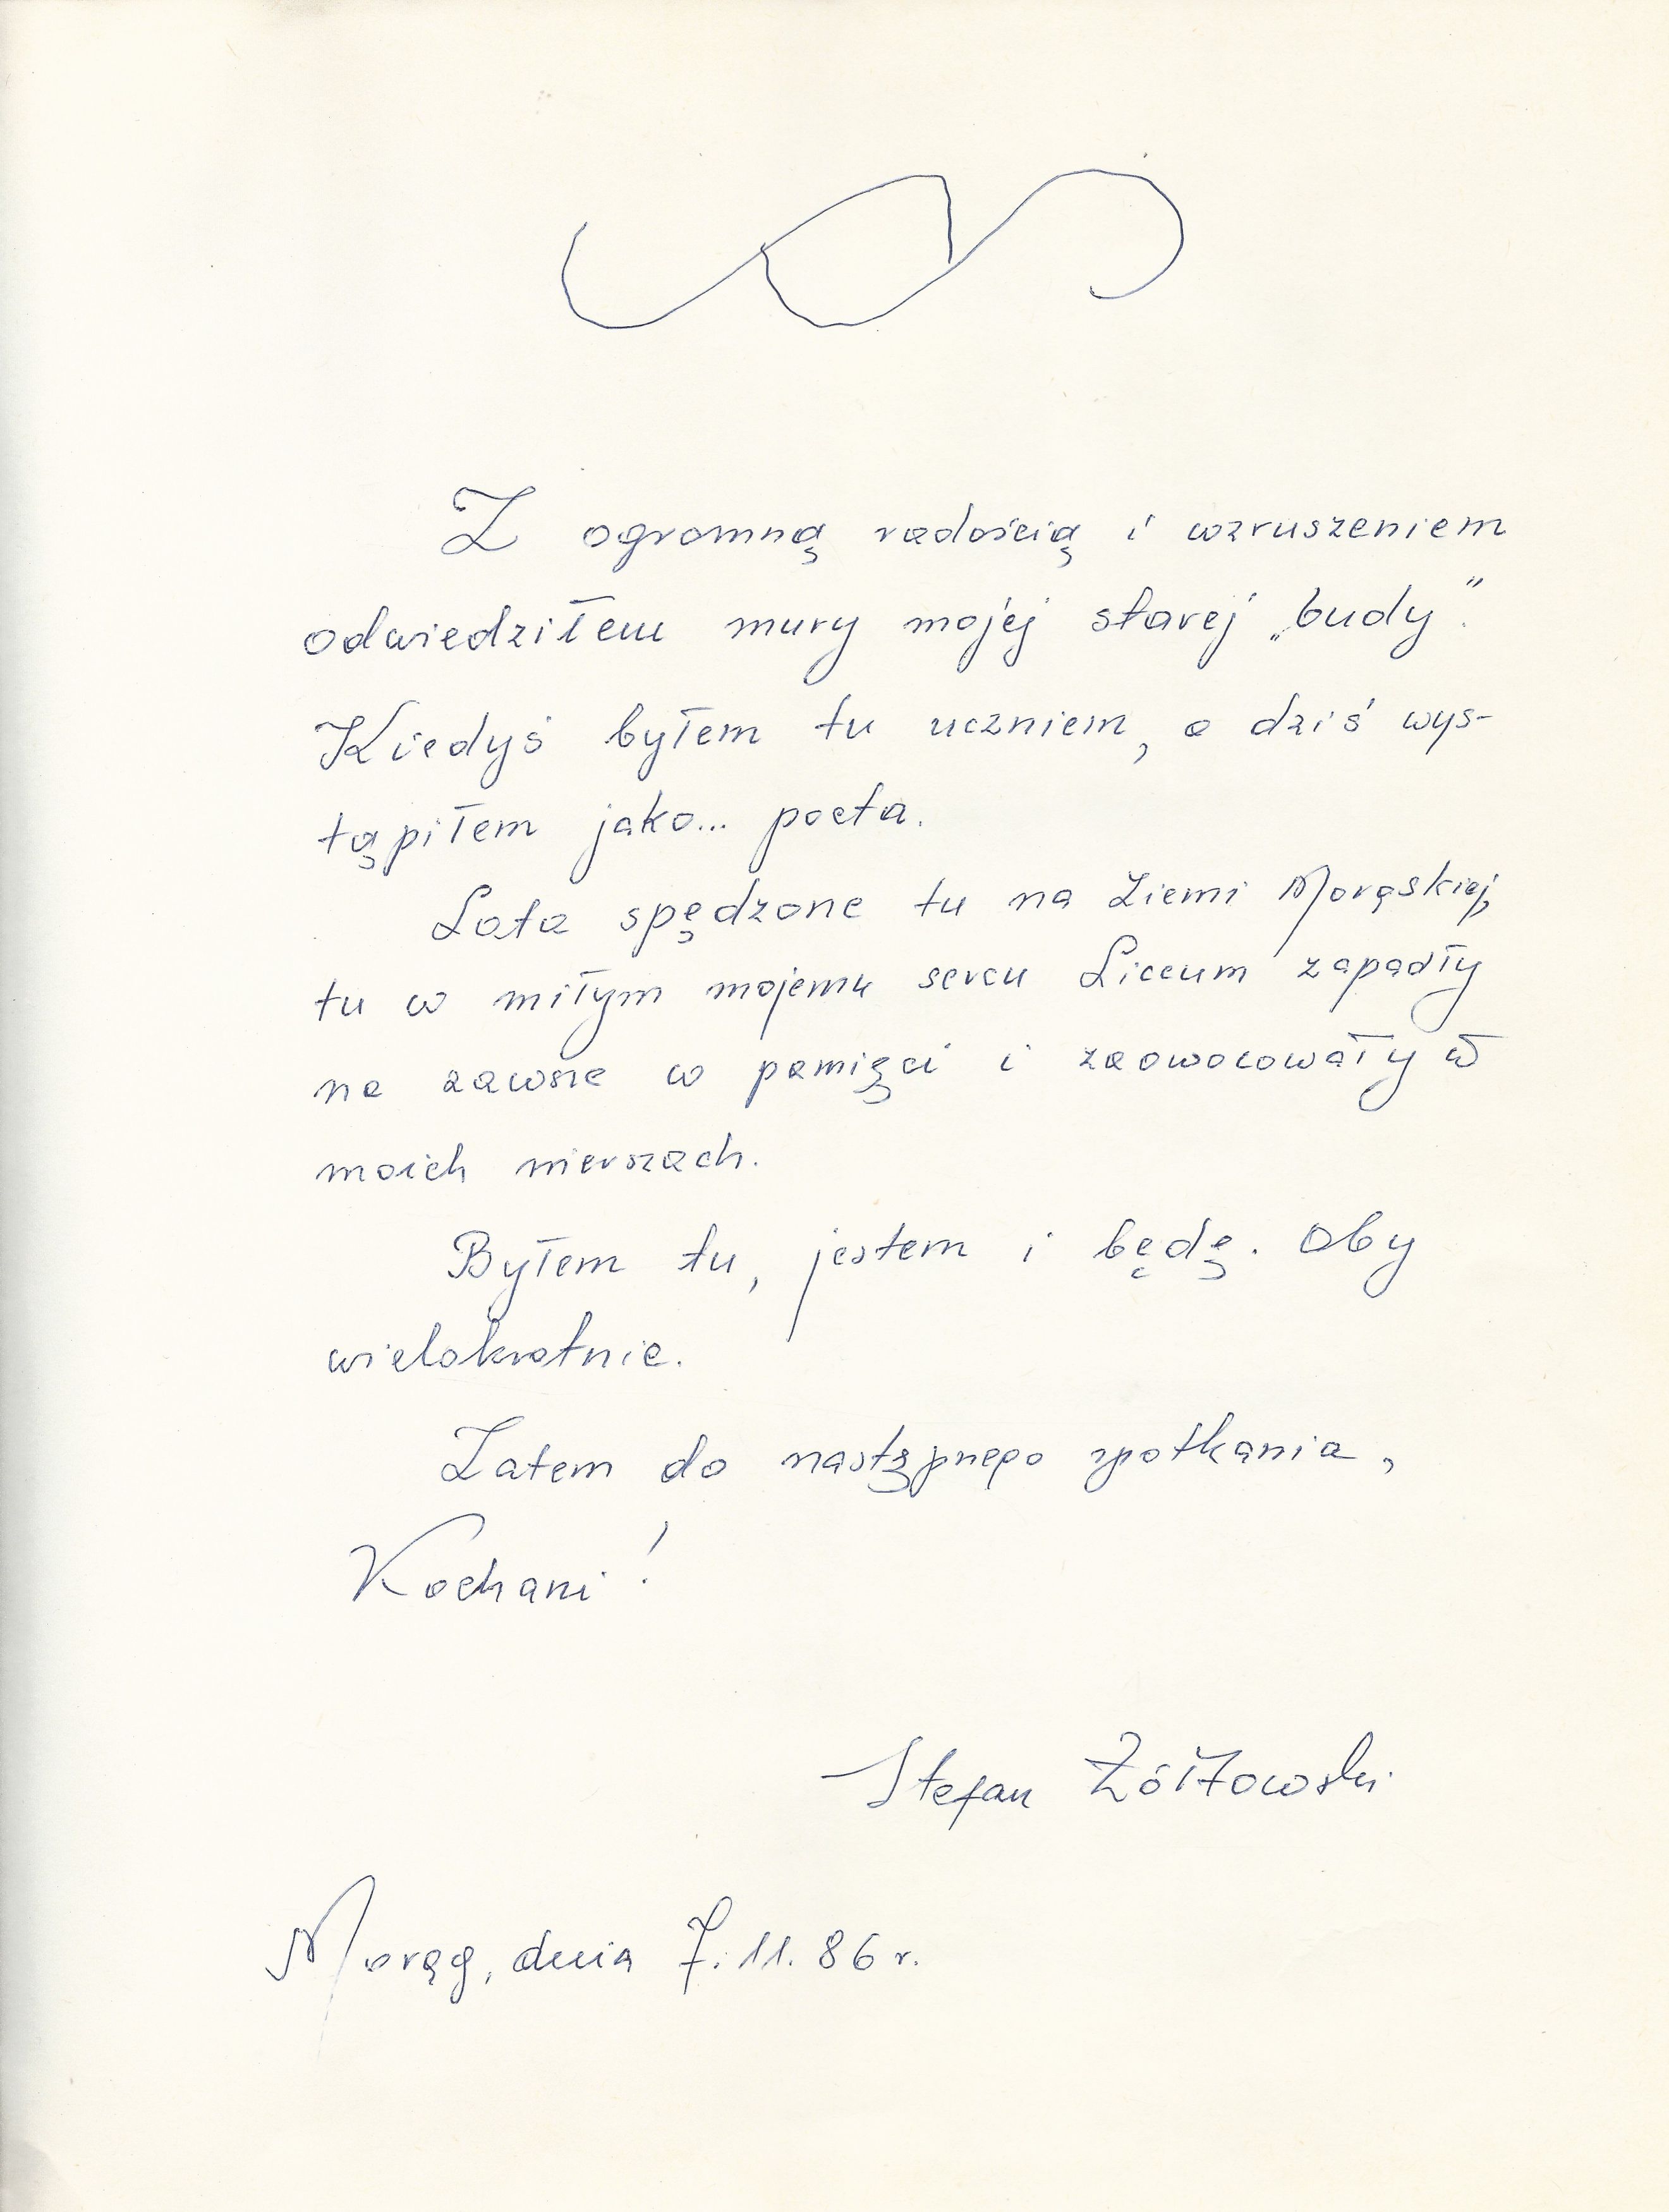 Z ogromną radością i wzruszeniem
odwiedziłem mury mojej starej „budy".
Kiedyś byłem tu uczniem, a dziś wys-
tąpiłem jako... poeta.
Lata spędzone tu na Ziemi Morąskiej,
tu w miłym mojemu sercu Liceum zapadły
na zawsze w pamięci i zaowocowały w
moich wierszach.
Byłem tu, jestem i będę. Oby
wielokrotnie.
Zatem do następnego spotkania,
Kochani!
Stefan Żółtowski
Morąg, dnia 7.11.86 r.